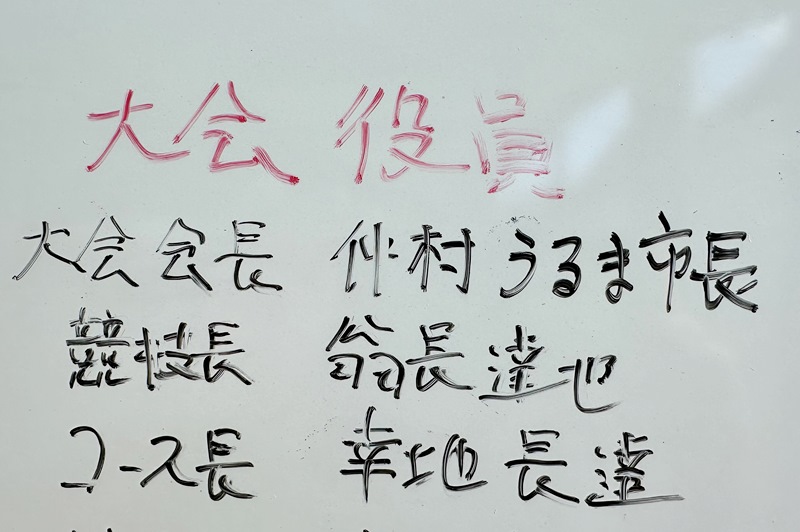 大会 役員
大会会長 仲村うるま市長
競技長 翁長達也
コース長 幸地長達